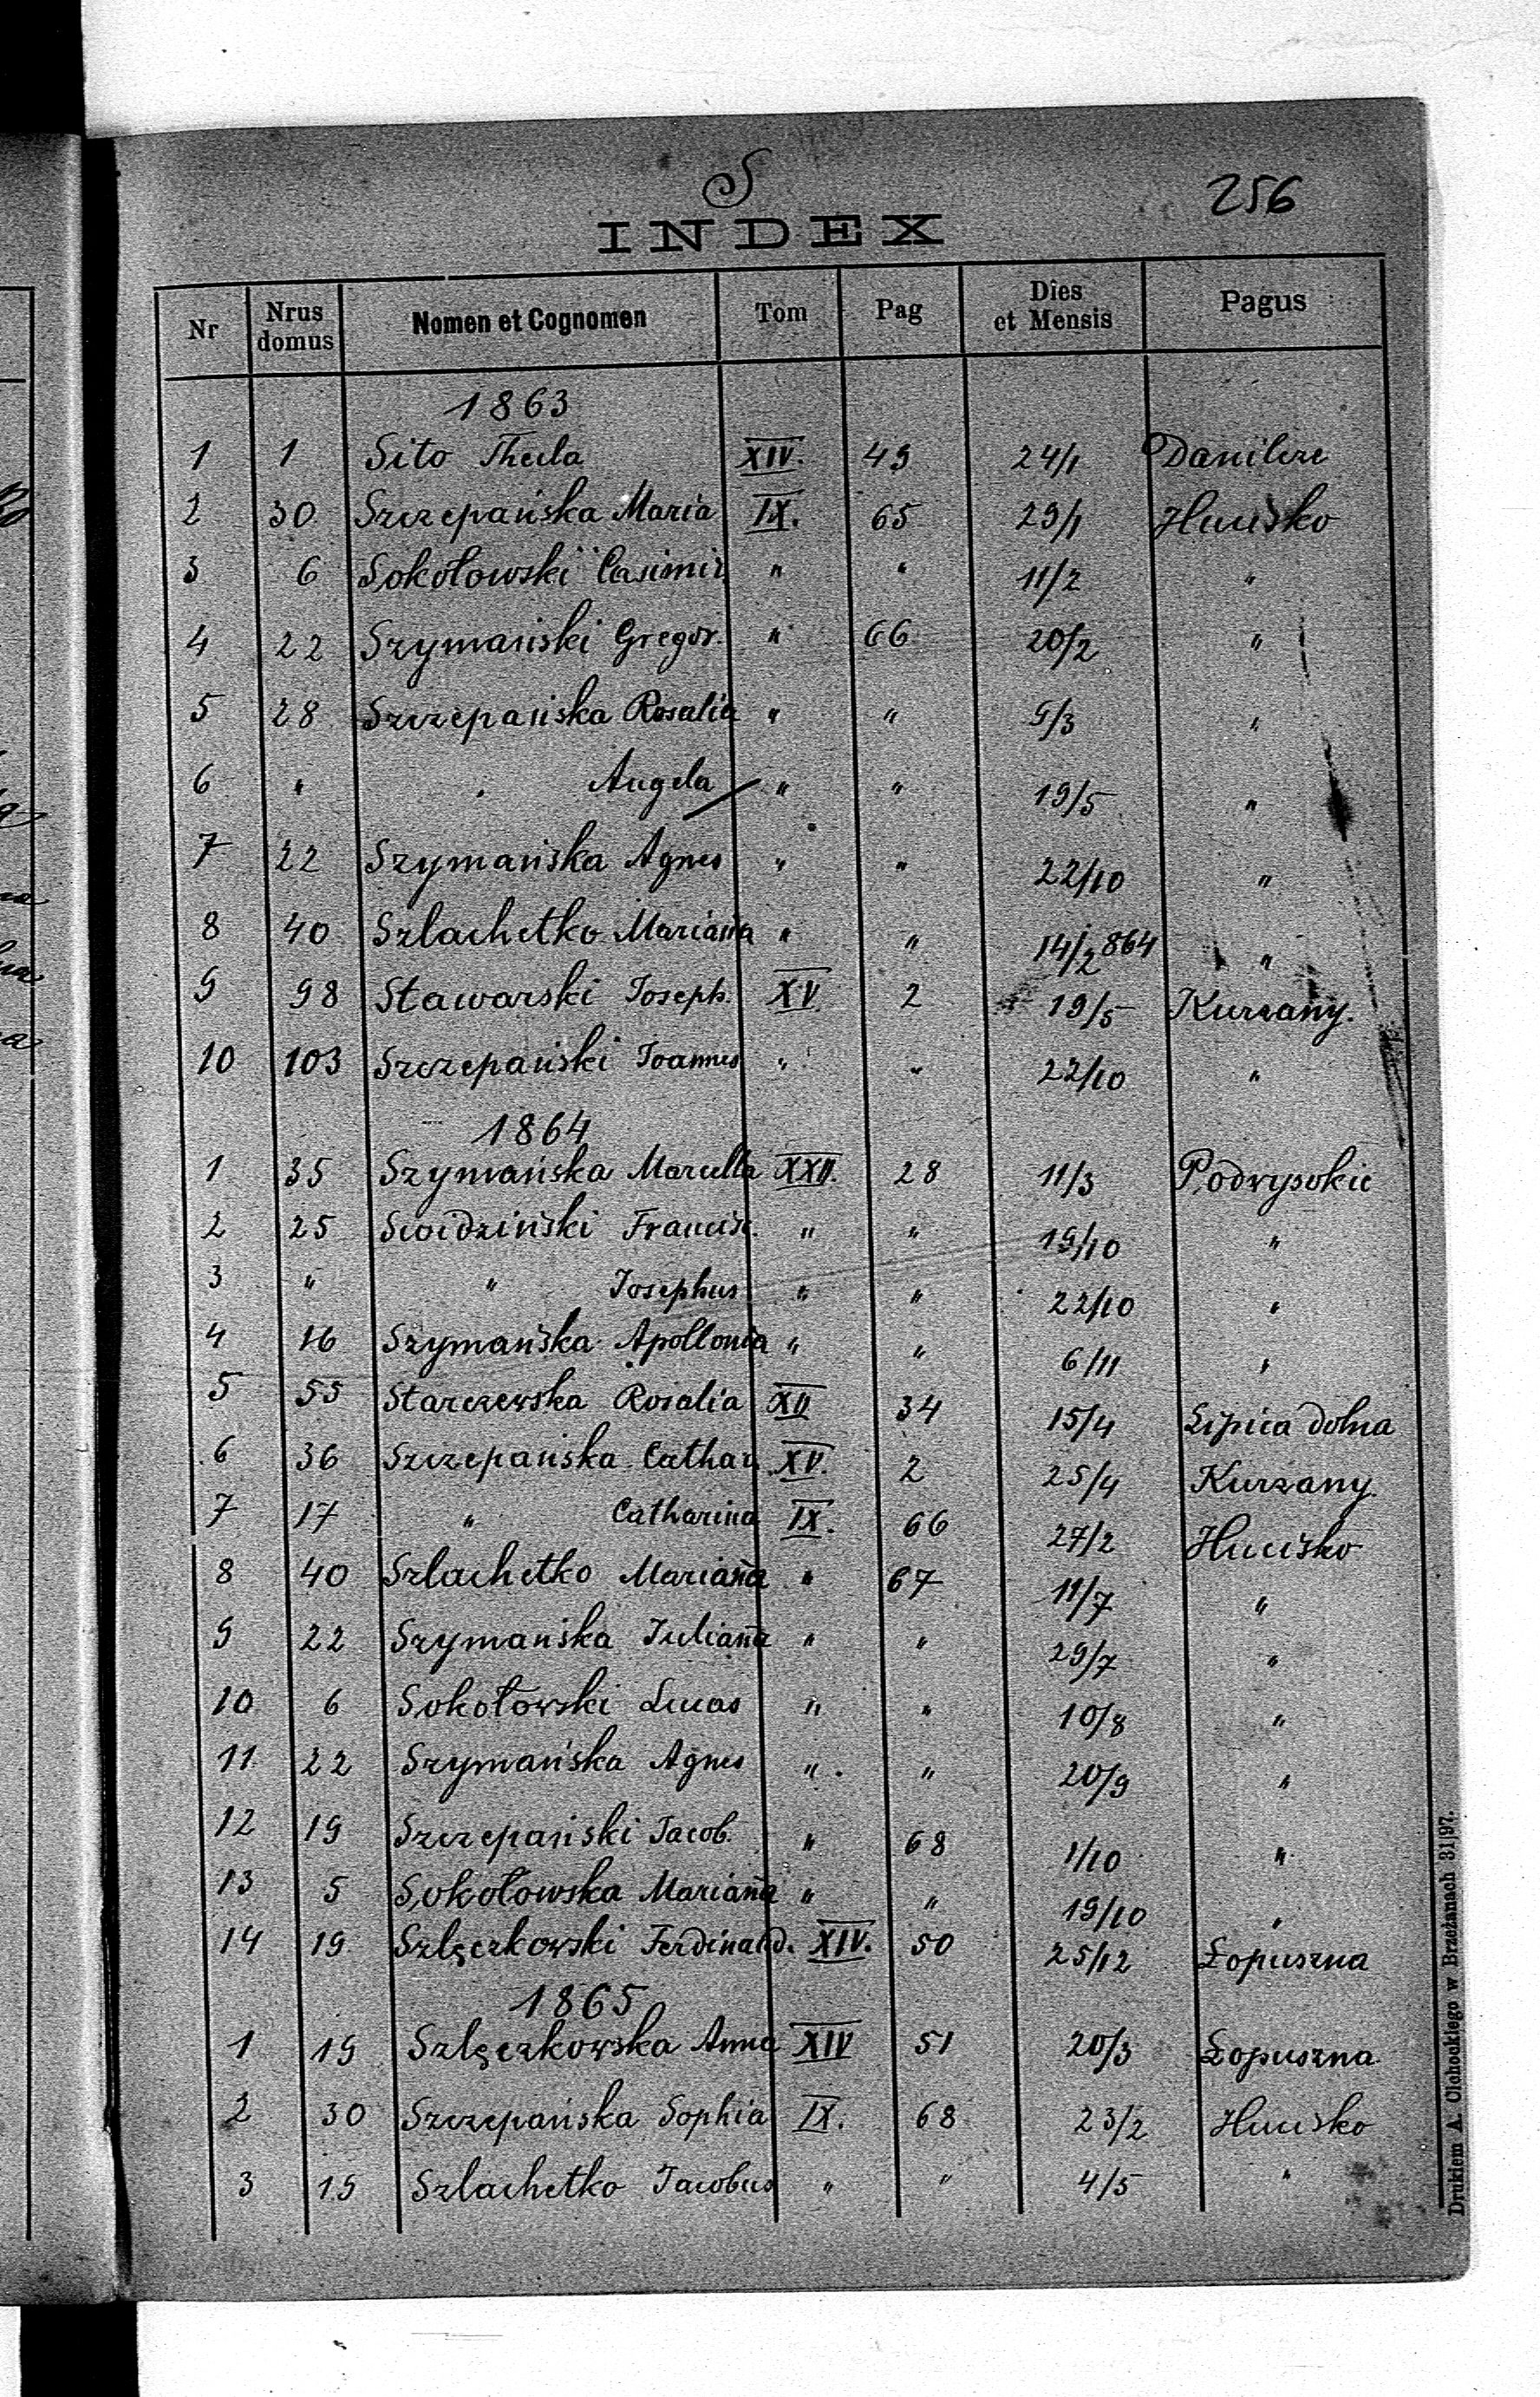 S
256
INDEX
Nr Nrus domus Nomen et Cognomen Tom Pag Dies et Mensis Pagus
1863
1 1 Sito Thecla XIV. 49 24/1 Danilcze
2 30 Szczepańska Maria IX. 65 29/1 Hucisko
3 6 Sokołowski Casimir " " 11/2 "
4 22 Szymański Gregor. " 66 20/2 "
5 28 Szczepańska Rosalia " " 9/3 "
6 " " Angela " " 19/5 "
7 22 Szymańska Agnes " " 22/10 "
8 40 Szlachetko Marianna " " 14/2 864 "
9 98 Stawarski Joseph. XV 2 19/5 Kurzany.
10 103 Szczepański Joannes " " 22/10 "
1864
1 35 Szymańska Marcella XXII. 28 11/3 Podwysokie
2 25 Swidziński Francisc. " " 19/10 "
3 " " Josephus " " 22/10 "
4 16 Szymańska Apollonia " " 6/11 "
5 55 Starczewska Rosalia XII 34 15/4 Lipica dolna
6 36 Szczepańska Cathar. XV. 2 25/4 Kurzany.
7 17 " Catharina IX. 66 27/2 Hucisko
8 40 Szlachetko Marianna " 67 11/7 "
9 22 Szymańska Julianna " " 29/7 "
10 6 Sokołowski Lucas " " 10/8 "
11 22 Szymańska Agnes " " 20/9 "
12 19 Szczepański Jacob. " 68 1/10 "
13 5 Sokołowska Marianna " " 19/10 "
14 19 Szlęczkowski Ferdinand. XIV. 50 25/12 Łopuszna
1865
1 19 Szlęczkowska Anna XIV 51 20/3 Łopuszna
2 30 Szczepańska Sophia IX. 68 23/2 Hucisko
3 19 Szlachetko Jacobus " " 4/5 "
Drukiem A. Olchockiego w Brzeżanach 31|97.